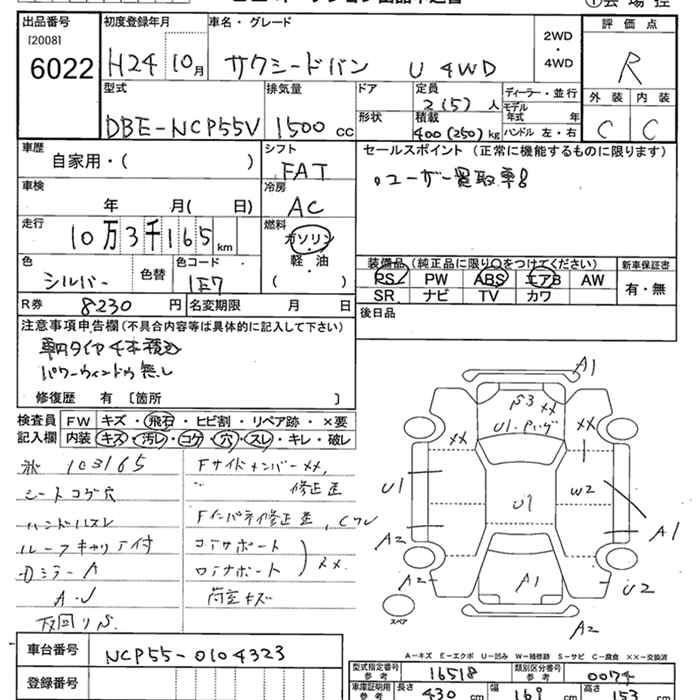 出品番号
[2008]
6022
初度登録年月
H24 10月
車名・グレード
サクシードバン U 4WD
2WD
・
4WD
評価点
R
外装 内装
C C
型式
DBE-NCP55V
排気量
1500 cc
ドア
形状
定員
2(5)人
積載
400(250)kg
ディーラー・並行
モデル年式 年
ハンドル 左・右
車歴
自家用・( )
車検
年 月( 日)
走行
10万3千165km
色
シルバー
色替
色コード
1E7
シフト
FAT
冷房
AC
燃料
ガソリン
・
軽・油
( )
セールスポイント (正常に機能するものに限ります)
ユーザー買取車
装備品(純正品に限り○をつけてください)
PS PW ABS エアB AW
SR ナビ TV カワ
新車保証書
有・無
R券 8230円
名変期限 月 日
後日品
注意事項申告欄(不具合内容等は具体的に記入して下さい)
車内タイヤ4本積込
パワーウィンドウ無し
修復歴 有 [箇所 ]
検査員
記入欄
FW キズ・飛石・ヒビ割・リペア跡・×要
内装 キズ・汚レ・コゲ・穴・スレ・キレ・破レ
103165
シートコゲ穴
ハンドルスレ
ルーフキャリア付
ミラーA
A・U
Fサイドメンバー××,
修正歪
Fインパネ修正歪,
コアサポート
ロアサポート
××
荷室キズ
A1
××
××
××
U1
U1
W2
A1
A2
A2
A1
U2
A2
スペア
A-キズ E-エクボ U-凹み W-補修跡 S-サビ C-腐食 ××-交換済
車台番号
NCP55-0104323
登録番号
型式指定番号
参考
16518
類別区分番号
参考
0074
車庫証明用
参考
長さ 430 cm 幅 169 cm 高さ 153 cm